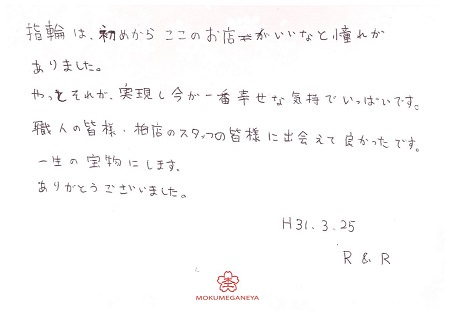 指輪は、初めからここのお店がいいなと憧れが
ありました。
やっとそれが、実現し今が一番幸せな気持でいっぱいです。
職人の皆様・柏店のスタッフの皆様に出会えて良かったです。
一生の宝物にします。
ありがとうございました。
H31.3.25
R & R
MOKUMEGANEYA